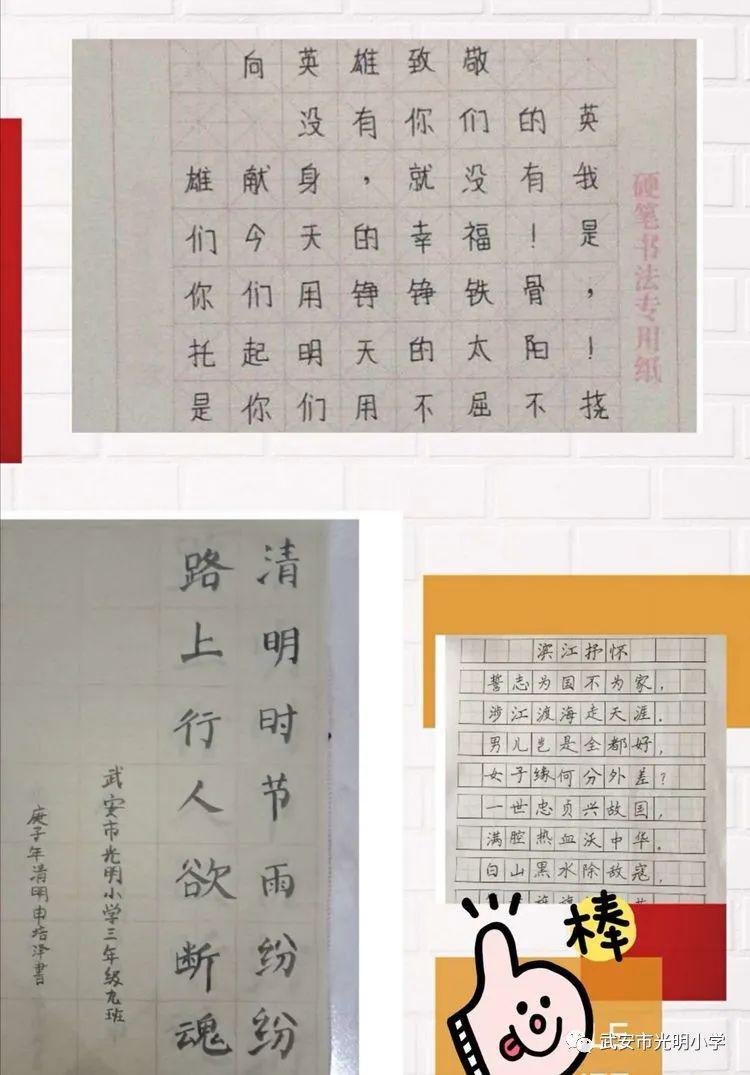 向英雄致敬
没有你们的英
雄献身，就没有我
们今天的幸福！是
你们用铮铮铁骨，
托起明天的太阳！
是你们用不屈不挠
硬笔书法专用纸
清明时节雨纷纷
路上行人欲断魂
武安市光明小学三年级九班
庚子年清明申培泽書
滨江抒怀
誓志为国不为家，
涉江渡海走天涯。
男儿岂是全都好，
女子缘何分外差？
一世忠贞兴故国，
满腔热血沃中华。
白山黑水除敌寇，
棒
武安市光明小学